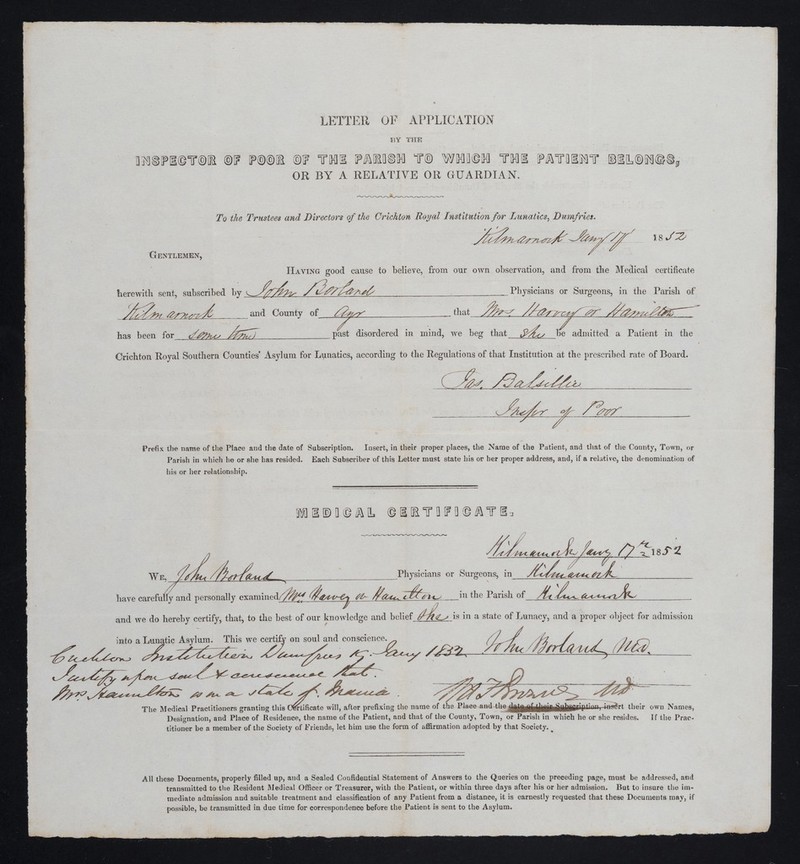 LETTER OF APPLICATION
BY THE
INSPECTOR OF POOR OF THE PARISH TO WHICH THE PATIENT BELONGS,
OR BY A RELATIVE OR GUARDIAN.
To the Trustees and Directors of the Crichton Royal Institution for Lunatics, Dumfries.
Kilmarnock Jany 17 1852
GENTLEMEN,
HAVING good cause to believe, from our own observation, and from the Medical certificate
herewith sent, subscribed by John Borland Physicians or Surgeons, in the Parish of
Kilmarnock and County of Ayr that Mrs Harvey or Hamilton
has been for some time past disordered in mind, we beg that She be admitted a Patient in the
Crichton Royal Southern Counties' Asylum for Lunatics, according to the Regulations of that Institution at the prescribed rate of Board.
Jas. Balsillie
Inspr of Poor
Prefix the name of the Place and the date of Subscription. Insert, in their proper places, the Name of the Patient, and that of the County, Town, or
Parish in which he or she has resided. Each Subscriber of this Letter must state his or her proper address, and, if a relative, the denomination of
his or her relationship.
MEDICAL CERTIFICATE.
Kilmarnock Jany 17th 1852
WE, John Borland Physicians or Surgeons, in Kilmarnock
have carefully and personally examined Mrs Harvey or Hamilton in the Parish of Kilmarnock
and we do hereby certify, that, to the best of our knowledge and belief she is in a state of Lunacy, and a proper object for admission
into a Lunatic Asylum. This we certify on soul and conscience.
John Borland M.D.
Crichton Institution Dumfries Jany 1852
I certify upon soul & conscience that
Mrs Hamilton is in a state of Mania.
MD
The Medical Practitioners granting this Certificate will, after prefixing the name of the Place and the date of their Subscription, insert their own Names,
Designation, and Place of Residence, the name of the Patient, and that of the County, Town, or Parish in which he or she resides. If the Prac-
titioner be a member of the Society of Friends, let him use the form of affirmation adopted by that Society.
All these Documents, properly filled up, and a Sealed Confidential Statement of Answers to the Queries on the preceding page, must be addressed, and
transmitted to the Resident Medical Officer or Treasurer, with the Patient, or within three days after his or her admission. But to insure the im-
mediate admission and suitable treatment and classification of any Patient from a distance, it is earnestly requested that these Documents may, if
possible, be transmitted in due time for correspondence before the Patient is sent to the Asylum.